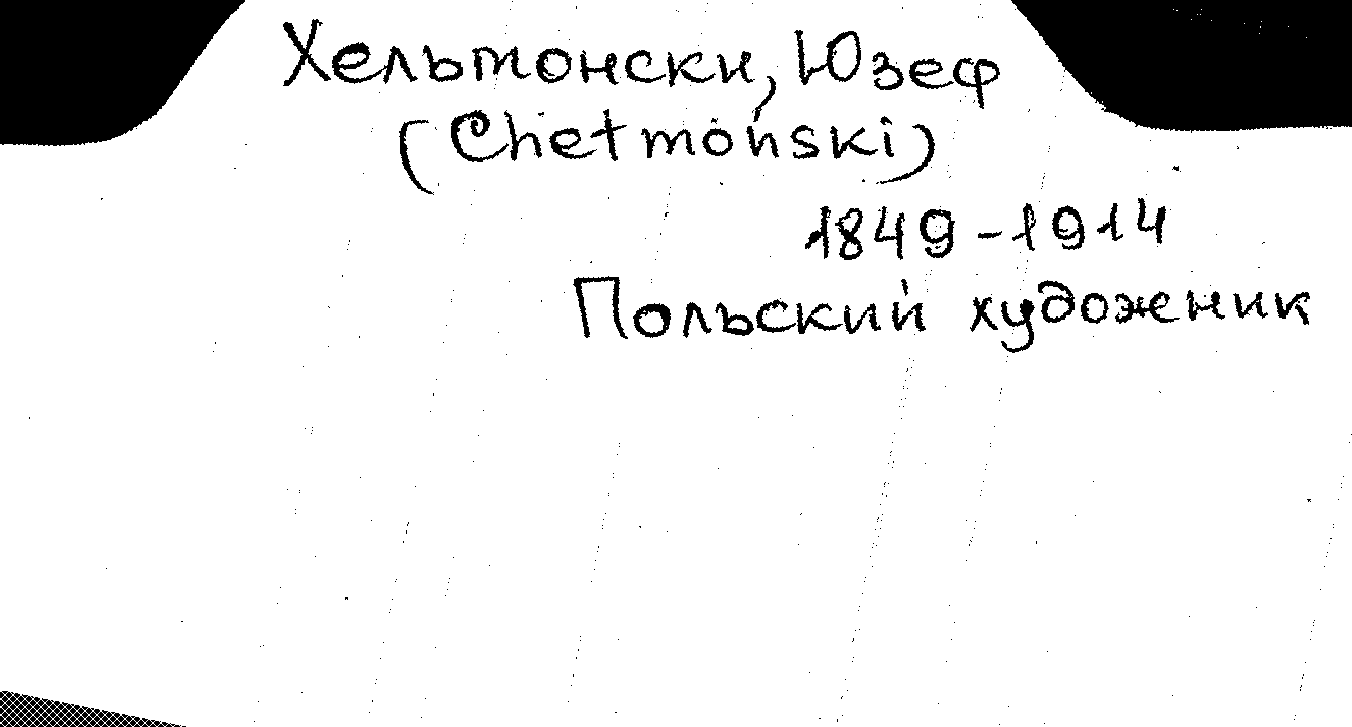 Хельтонски, Юзеф
(Chetmoński)
1849-1914
Польский художник